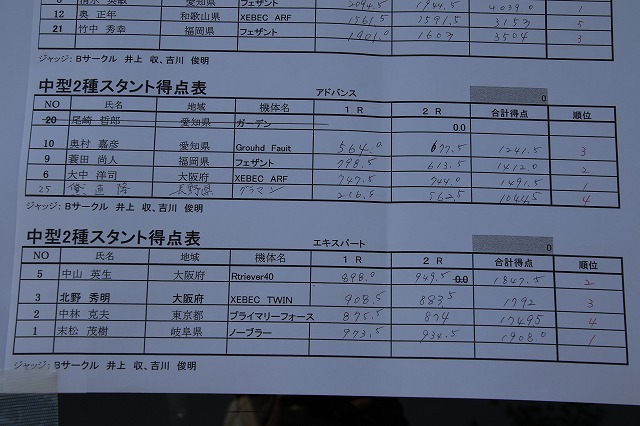 愛知県 フェザント 2094.5 1944.5 4039.0 1
12 奥 正年 和歌山県 XEBEC ARF 1561.5 1591.5 3153 5
21 竹中 秀幸 福岡県 フェザント 1901.0 1603 3504 3
ジャッジ: Bサークル 井上 収、吉川 俊明
中型2種スタント得点表 アドバンス 0
NO 氏名 地域 機体名 1 R 2 R 合計得点 順位
20 尾崎 哲郎 愛知県 ガーデン 0.0
10 奥村 嘉彦 愛知県 Grouhd Fauit 564.0 677.5 1241.5 3
9 蓑田 尚人 福岡県 フェザント 798.5 613.5 1412.0 2
6 大中 洋司 大阪府 XEBEC ARF 747.5 744.0 1491.5 1
25 直隆 長野県 グラマン 562.5 1044.5 4
ジャッジ: Bサークル 井上 収、吉川 俊明
中型2種スタント得点表 エキスパート 0
NO 氏名 地域 機体名 1 R 2 R 合計得点 順位
5 中山 英生 大阪府 Rtriever40 898.0 949.5 0.0 1847.5 2
3 北野 秀明 大阪府 XEBEC TWIN 908.5 883.5 1792 3
2 中林 克夫 東京都 プライマリーフォース 875.5 874 1749.5 4
1 末松 茂樹 岐阜県 ノーブラー 973.5 934.5 1908.0 1
ジャッジ: Bサークル 井上 収、吉川 俊明